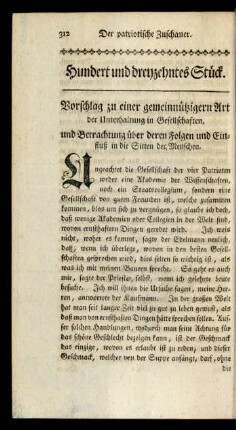 312 Der patriotische Zuschauer.
Hundert und dreyzehntes Stück.
Vorschlag zu einer gemeinnützigern Art
der Unterhaltung in Gesellschaften,
und Betrachtung über deren Folgen und Ein-
fluß in die Sitten der Menschen.
Ungeachtet die Gesellschaft der vier Patrioten
weder eine Akademie der Wissenschaften,
noch ein Staatscollegium, sondern eine
Gesellschaft von guten Freunden ist, welche zusammen
kommen, blos um sich zu vergnügen, so glaube ich doch,
daß wenige Akademien oder Collegien in der Welt sind,
wovon ernsthaftern Dingen geredet wird. Ich weis
nicht, woher es kommt, sagte der Edelmann neulich,
daß, wenn ich überlege, wovon in den besten Gesell-
schaften gesprochen wird, dies selten so wichtig ist, als
was ich mit meinen Bauern spreche. So geht es auch
mir, sagte der Priester, selbst, wenn ich gelehrte Leute
besuche. Ich will ihnen die Ursache sagen, meine Her-
ren, antwortete der Kaufmann. In der großen Welt
hat man seit langer Zeit viel zu gut zu leben gewust, als
daß man von ernsthaften Dingen hätte sprechen sollen. Aus-
ser solchen Handlungen, wodurch man seine Achtung für
das schöne Geschlecht bezeigen kann, ist der Geschmack
das einzige, wovon es erlaubt ist zu reden, und dieser
Geschmack, welcher von der Suppe anfängt, darf, ohne
die